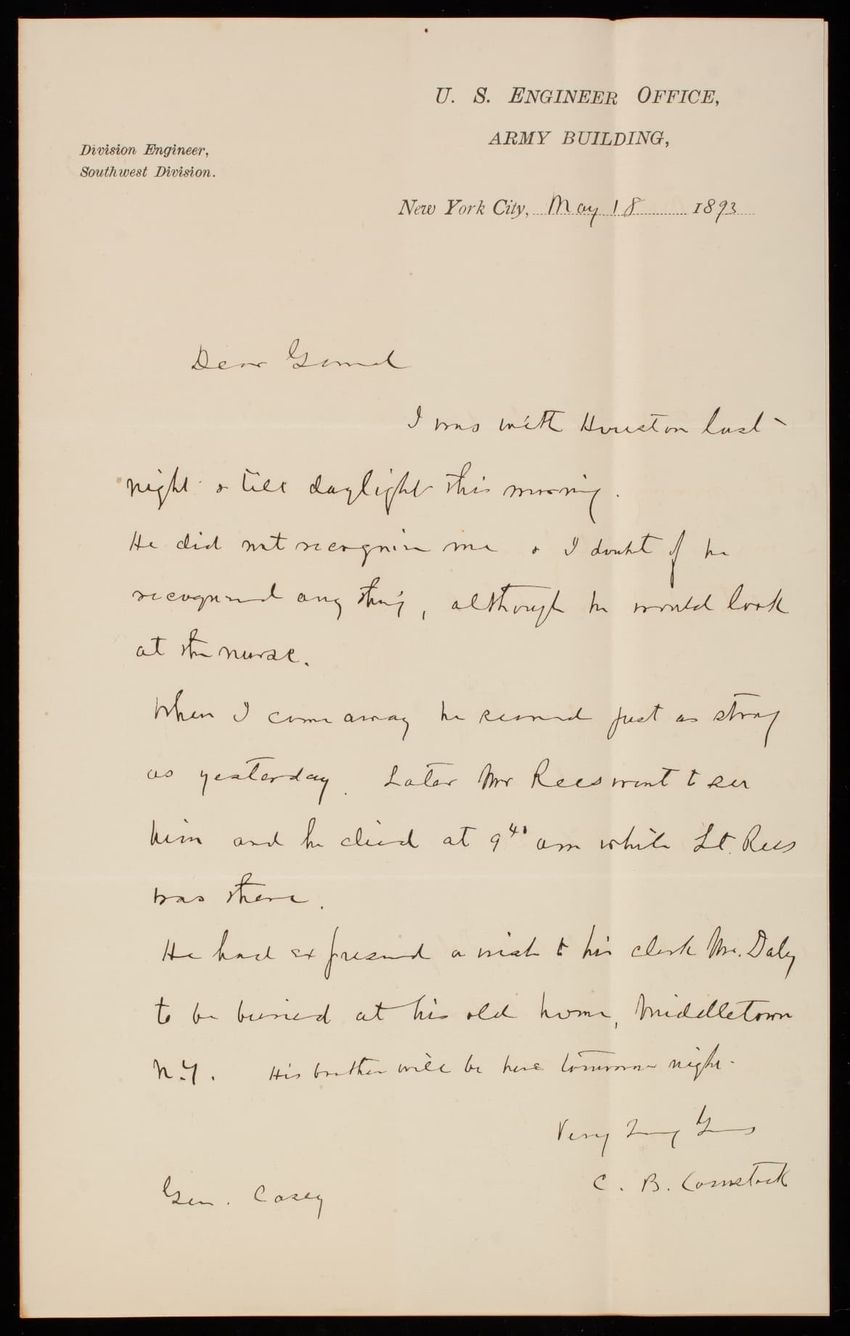 U. S. ENGINEER OFFICE,
ARMY BUILDING,
Division Engineer,
Southwest Division.
New York City, May 18 1893
Dear General
I was with Houston last
night & till daylight this morning.
He did not recognize me & I doubt if he
recognized any thing, although he would look
at the nurse.
When I came away he seemed just as strong
as yesterday. Later Mr Rees went to see
him and he died at 9 40 am while Lt. Rees
was there.
He had expressed a wish to his clerk Mr. Daly
to be buried at his old home, Middletown
N.Y. His brother will be here tomorrow night.
Very Truly Yours
C. B. Comstock
Gen. Casey